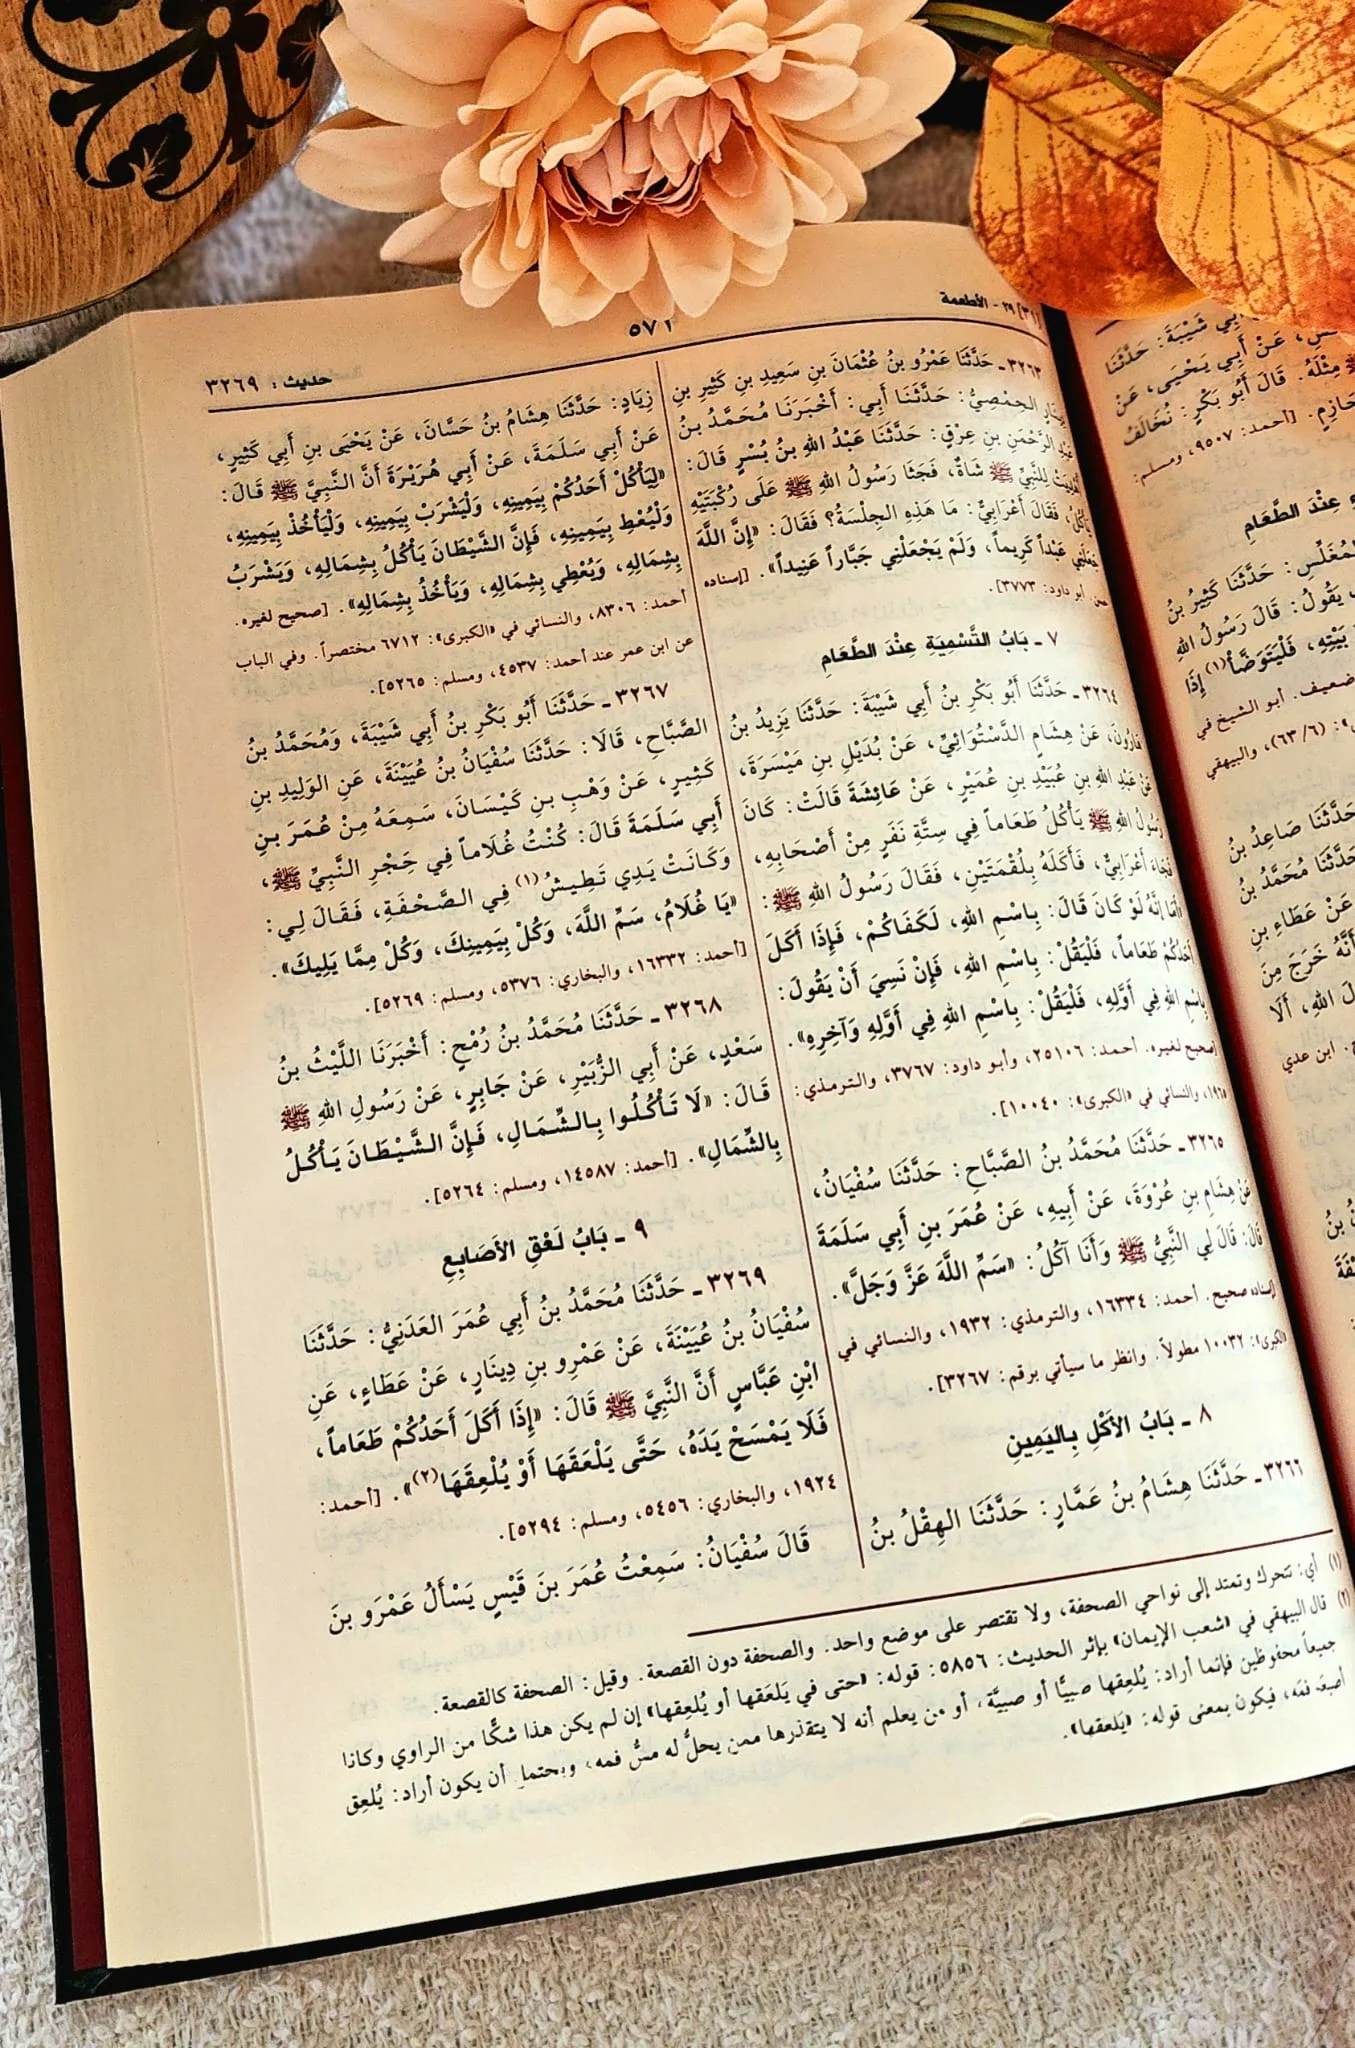 [٣١] ٢٩ - الأطعمة
٥٧١
حديث: ٣٢٦٩
٣٢٦٣ ـ حَدَّثَنَا عَمْرُو بنُ عُثْمَانَ بنِ سَعِيدِ بنِ كَثِيرِ بنِ
دِينَارٍ الحِمْصِيُّ: حَدَّثَنَا أَبِي: أَخْبَرَنَا مُحَمَّدُ بنُ
عَبْدِ الرَّحْمَنِ بنِ عِرْقٍ: حَدَّثَنَا عَبْدُ اللهِ بنُ بُسْرٍ قَالَ:
أَهْدَيْتُ لِلنَّبِيِّ ﷺ شَاةً، فَجَثَا رَسُولُ اللهِ ﷺ عَلَى رُكْبَتَيْهِ
يَأْكُلُ، فَقَالَ أَعْرَابِيٌّ: مَا هَذِهِ الجِلْسَةُ؟ فَقَالَ: «إِنَّ اللَّهَ
جَعَلَنِي عَبْداً كَرِيماً، وَلَمْ يَجْعَلْنِي جَبَّاراً عَنِيداً». [إسناده
حسن. أبو داود: ٣٧٧٣].
٧ ـ بَابُ التَّسْمِيَةِ عِنْدَ الطَّعَامِ
٣٢٦٤ ـ حَدَّثَنَا أَبُو بَكْرِ بنُ أَبِي شَيْبَةَ: حَدَّثَنَا يَزِيدُ بنُ
هَارُونَ، عَنْ هِشَامٍ الدَّسْتُوَائِيِّ، عَنْ بُدَيْلِ بنِ مَيْسَرَةَ،
عَنْ عَبْدِ اللهِ بنِ عُبَيْدِ بنِ عُمَيْرٍ، عَنْ عَائِشَةَ قَالَتْ: كَانَ
رَسُولُ اللهِ ﷺ يَأْكُلُ طَعَاماً فِي سِتَّةِ نَفَرٍ مِنْ أَصْحَابِهِ،
فَجَاءَ أَعْرَابِيٌّ، فَأَكَلَهُ بِلُقْمَتَيْنِ، فَقَالَ رَسُولُ اللهِ ﷺ:
«أَمَا إِنَّهُ لَوْ كَانَ قَالَ: بِاسْمِ اللهِ، لَكَفَاكُمْ، فَإِذَا أَكَلَ
أَحَدُكُمْ طَعَاماً، فَلْيَقُلْ: بِاسْمِ اللهِ، فَإِنْ نَسِيَ أَنْ يَقُولَ:
بِاسْمِ اللهِ فِي أَوَّلِهِ، فَلْيَقُلْ: بِاسْمِ اللهِ فِي أَوَّلِهِ وَآخِرِهِ».
[صحيح لغيره. أحمد: ٢٥١٠٦، وأبو داود: ٣٧٦٧، والترمذي:
١٩٦٥، والنسائي في «الكبرى»: ١٠٠٤٠].
٣٢٦٥ ـ حَدَّثَنَا مُحَمَّدُ بنُ الصَّبَّاحِ: حَدَّثَنَا سُفْيَانُ،
عَنْ هِشَامِ بنِ عُرْوَةَ، عَنْ أَبِيهِ، عَنْ عُمَرَ بنِ أَبِي سَلَمَةَ
قَالَ: قَالَ لِي النَّبِيُّ ﷺ وَأَنَا آكُلُ: «سَمِّ اللَّهَ عَزَّ وَجَلَّ».
[إسناده صحيح. أحمد: ١٦٣٣٤، والترمذي: ١٩٣٢، والنسائي في
«الكبرى»: ١٠٠٣٢ مطولاً. وانظر ما سيأتي برقم: ٣٢٦٧].
٨ ـ بَابُ الأَكْلِ بِاليَمِينِ
٣٢٦٦ ـ حَدَّثَنَا هِشَامُ بنُ عَمَّارٍ: حَدَّثَنَا الهِقْلُ بنُ
زِيَادٍ: حَدَّثَنَا هِشَامُ بنُ حَسَّانَ، عَنْ يَحْيَى بنِ أَبِي كَثِيرٍ،
عَنْ أَبِي سَلَمَةَ، عَنْ أَبِي هُرَيْرَةَ أَنَّ النَّبِيَّ ﷺ قَالَ:
«لِيَأْكُلْ أَحَدُكُمْ بِيَمِينِهِ، وَلْيَشْرَبْ بِيَمِينِهِ، وَلْيَأْخُذْ بِيَمِينِهِ،
وَلْيُعْطِ بِيَمِينِهِ، فَإِنَّ الشَّيْطَانَ يَأْكُلُ بِشِمَالِهِ، وَيَشْرَبُ
بِشِمَالِهِ، وَيُعْطِي بِشِمَالِهِ، وَيَأْخُذُ بِشِمَالِهِ». [صحيح لغيره.
أحمد: ٨٣٠٦، والنسائي في «الكبرى»: ٦٧١٢ مختصراً. وفي الباب
عن ابن عمر عند أحمد: ٤٥٣٧، ومسلم: ٥٢٦٥].
٣٢٦٧ ـ حَدَّثَنَا أَبُو بَكْرِ بنُ أَبِي شَيْبَةَ، وَمُحَمَّدُ بنُ
الصَّبَّاحِ، قَالَا: حَدَّثَنَا سُفْيَانُ بنُ عُيَيْنَةَ، عَنِ الوَلِيدِ بنِ
كَثِيرٍ، عَنْ وَهْبِ بنِ كَيْسَانَ، سَمِعَهُ مِنْ عُمَرَ بنِ
أَبِي سَلَمَةَ قَالَ: كُنْتُ غُلَاماً فِي حَِجْرِ النَّبِيِّ ﷺ،
وَكَانَتْ يَدِي تَطِيشُ(١) فِي الصَّحْفَةِ، فَقَالَ لِي:
«يَا غُلَامُ، سَمِّ اللَّهَ، وَكُلْ بِيَمِينِكَ، وَكُلْ مِمَّا يَلِيكَ».
[أحمد: ١٦٣٣٢، والبخاري: ٥٣٧٦، ومسلم: ٥٢٦٩].
٣٢٦٨ ـ حَدَّثَنَا مُحَمَّدُ بنُ رُمْحٍ: أَخْبَرَنَا اللَّيْثُ بنُ
سَعْدٍ، عَنْ أَبِي الزُّبَيْرِ، عَنْ جَابِرٍ، عَنْ رَسُولِ اللهِ ﷺ
قَالَ: «لَا تَأْكُلُوا بِالشِّمَالِ، فَإِنَّ الشَّيْطَانَ يَأْكُلُ
بِالشِّمَالِ». [أحمد: ١٤٥٨٧، ومسلم: ٥٢٦٤].
٩ ـ بَابُ لَعْقِ الأَصَابِعِ
٣٢٦٩ ـ حَدَّثَنَا مُحَمَّدُ بنُ أَبِي عُمَرَ العَدَنِيُّ: حَدَّثَنَا
سُفْيَانُ بنُ عُيَيْنَةَ، عَنْ عَمْرِو بنِ دِينَارٍ، عَنْ عَطَاءٍ، عَنِ
ابْنِ عَبَّاسٍ أَنَّ النَّبِيَّ ﷺ قَالَ: «إِذَا أَكَلَ أَحَدُكُمْ طَعَاماً،
فَلَا يَمْسَحْ يَدَهُ، حَتَّى يَلْعَقَهَا أَوْ يُلْعِقَهَا(٢)». [أحمد:
١٩٢٤، والبخاري: ٥٤٥٦، ومسلم: ٥٢٩٤].
قَالَ سُفْيَانُ: سَمِعْتُ عُمَرَ بنَ قَيْسٍ يَسْأَلُ عَمْرَو بنَ
(١) أي: تتحرك وتمتد إلى نواحي الصحفة، ولا تقتصر على موضع واحد. والصحفة دون القصعة. وقيل: الصحفة كالقصعة.
(٢) قال البيهقي في «شعب الإيمان» بإثر الحديث: ٥٨٥٦: قوله: «حتى في يَلعَقها أو يُلعِقها» إن لم يكن هذا شكًّا من الراوي وكانا
جميعاً محفوظين فإنما أراد: يُلعِقها صبيًّا أو صبيَّة، أو من يعلم أنه لا يتقذرها ممن يحلُّ له مسُّ فمه، ويحتمل أن يكون أراد: يُلعِق
أصبعه فمَه، فيكون بمعنى قوله: «يَلعقها».
أَبِي شَيْبَةَ: حَدَّثَنَا
عَنْ أَبِي يَحْيَى، عَنْ
مِثْلَهُ. قَالَ أَبُو بَكْرٍ: نُخَالَفُ
حَازِمٍ. [أحمد: ٩٥٠٧، ومسلم:
عِنْدَ الطَّعَامِ
المُغَلِّسِ: حَدَّثَنَا كَثِيرُ بنُ
يَقُولُ: قَالَ رَسُولُ اللهِ
بَيْتِهِ، فَلْيَتَوَضَّأْ(١) إِذَا
ضعيف. أبو الشيخ في
(٦/ ٦٣)، والبيهقي
حَدَّثَنَا صَاعِدُ بنُ
حَدَّثَنَا مُحَمَّدُ بنُ
عَنْ عَطَاءِ بنِ
أَنَّهُ خَرَجَ مِنَ
اللهِ، أَلَا
ابن عدي